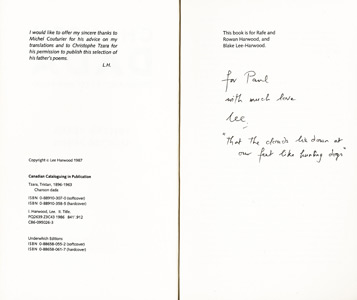 I would like to offer my sincere thanks to
Michel Couturier for his advice on my
translations and to Christophe Tzara for
his permission to publish this selection of
his father's poems.
L.H.
Copyright © Lee Harwood 1987
Canadian Cataloguing in Publication
Tzara, Tristan, 1896-1963
Chanson dada
ISBN 0-88910-307-0 (softcover)
ISBN 0-88910-056-9 (hardcover)
I. Harwood, Lee. II. Title.
PQ2639.Z3C43 1986 841'.912
C86-095026-3
Underwhich Editions
ISBN 0-88658-055-2 (softcover)
ISBN 0-88658-061-7 (hardcover)
This book is for Rafe and
Rowan Harwood, and
Blake Lee-Harwood.
for Paul
with much love
Lee
"That the clouds lie down at
our feet like hunting dogs"